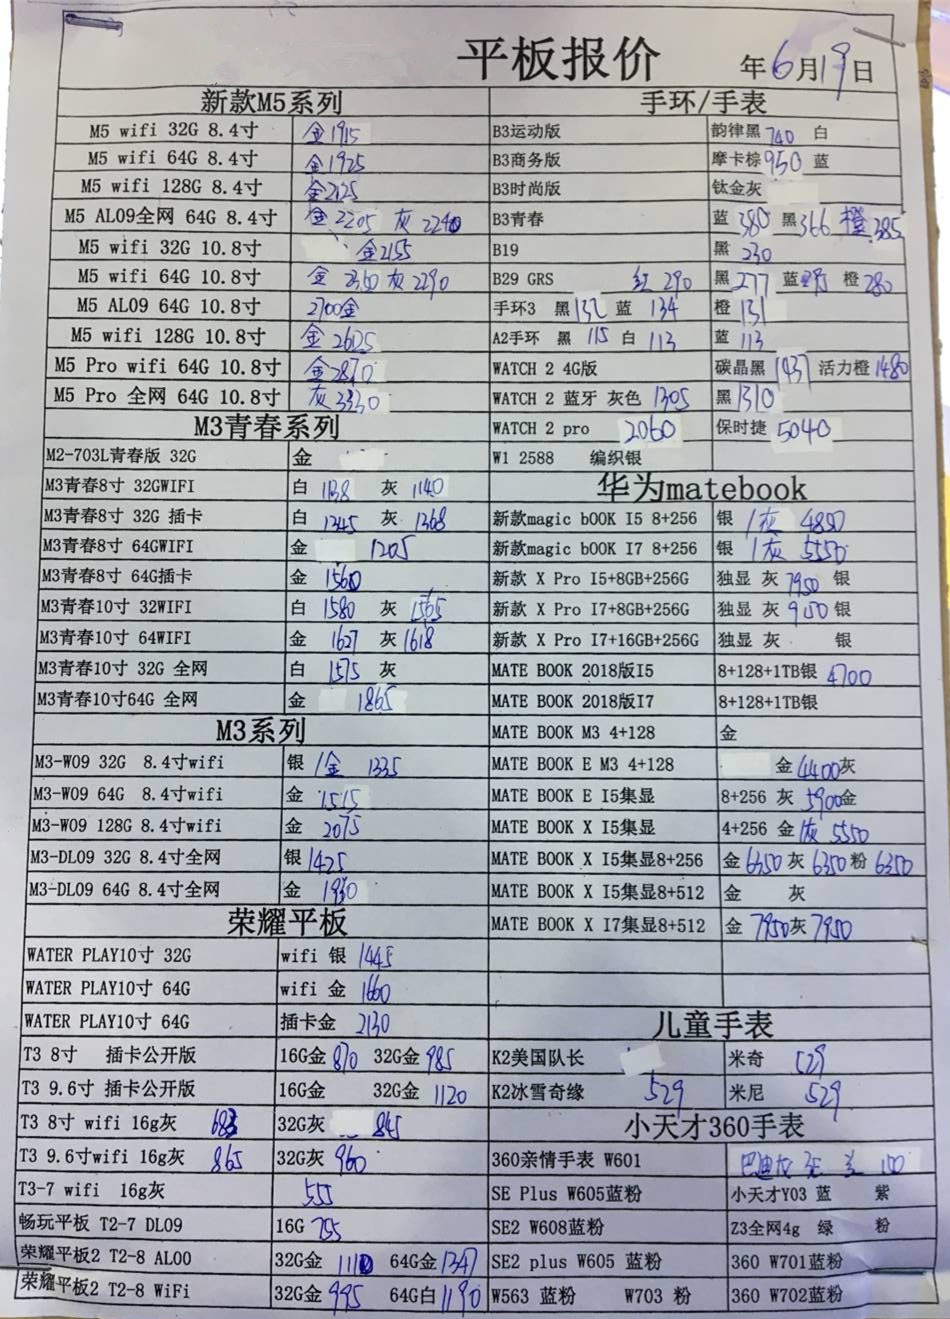 平板报价 年6月19日
新款M5系列
M5 wifi 32G 8.4寸 金1915
M5 wifi 64G 8.4寸 金1925
M5 wifi 128G 8.4寸 金2125
M5 AL09全网 64G 8.4寸 金2205 灰2240
M5 wifi 32G 10.8寸 金2155
M5 wifi 64G 10.8寸 金 灰2290
M5 AL09 64G 10.8寸 2700金
M5 wifi 128G 10.8寸 金2625
M5 Pro wifi 64G 10.8寸 金2870
M5 Pro 全网 64G 10.8寸 灰3330
M3青春系列
M2-703L青春版 32G 金
M3青春8寸 32GWIFI 白 1138 灰 1140
M3青春8寸 32G 插卡 白 1345 灰 1368
M3青春8寸 64GWIFI 金 1205
M3青春8寸 64G插卡 金 1560
M3青春10寸 32WIFI 白 1580 灰 1565
M3青春10寸 64WIFI 金 1627 灰 1618
M3青春10寸 32G 全网 白 1575 灰
M3青春10寸64G 全网 金 1865
M3系列
M3-W09 32G 8.4寸wifi 银 /金 1335
M3-W09 64G 8.4寸wifi 金 1515
M3-W09 128G 8.4寸wifi 金 2075
M3-DL09 32G 8.4寸全网 银1425
M3-DL09 64G 8.4寸全网 金 1930
荣耀平板
WATER PLAY10寸 32G wifi 银 1445
WATER PLAY10寸 64G wifi 金 1660
WATER PLAY10寸 64G 插卡金 2130
T3 8寸 插卡公开版 16G金 870 32G金 985
T3 9.6寸 插卡公开版 16G金 32G金 1120
T3 8寸 wifi 16g灰 683 32G灰 845
T3 9.6寸wifi 16g灰 865 32G灰 960
T3-7 wifi 16g灰 555
畅玩平板 T2-7 DL09 16G 755
荣耀平板2 T2-8 AL00 32G金 1110 64G金1347
荣耀平板2 T2-8 WiFi 32G金 995 64G白1190
手环/手表
B3运动版 韵律黑 740 白
B3商务版 摩卡棕950 蓝
B3时尚版 钛金灰
B3青春 蓝 380 黑366 橙 385
B19 黑 230
B29 GRS 红 290 黑277 蓝 橙 280
手环3 黑132 蓝 134 橙 131
A2手环 黑 115 白 113 蓝 113
WATCH 2 4G版 碳晶黑1437 活力橙1480
WATCH 2 蓝牙 灰色 1305 黑1310
WATCH 2 pro 2060 保时捷 5040
W1 2588 编织银
华为matebook
新款magic bOOK I5 8+256 银 /灰 4850
新款magic bOOK I7 8+256 银 /灰 5550
新款 X Pro I5+8GB+256G 独显 灰 7950 银
新款 X Pro I7+8GB+256G 独显 灰 9150 银
新款 X Pro I7+16GB+256G 独显 灰 银
MATE BOOK 2018版I5 8+128+1TB银 4700
MATE BOOK 2018版I7 8+128+1TB银
MATE BOOK M3 4+128 金
MATE BOOK E M3 4+128 金4400灰
MATE BOOK E I5集显 8+256 灰 5900金
MATE BOOK X I5集显 4+256 金/灰 5550
MATE BOOK X I5集显8+256 金6350灰6350粉6350
MATE BOOK X I5集显8+512 金 灰
MATE BOOK X I7集显8+512 金 7950灰7950
儿童手表
K2美国队长 米奇 529
K2冰雪奇缘 529 米尼 529
小天才360手表
360亲情手表 W601
SE Plus W605蓝粉 小天才Y03 蓝 紫
SE2 W608蓝粉 Z3全网4g 绿 粉
SE2 plus W605 蓝粉 360 W701蓝粉
W563 蓝粉 W703 粉 360 W702蓝粉